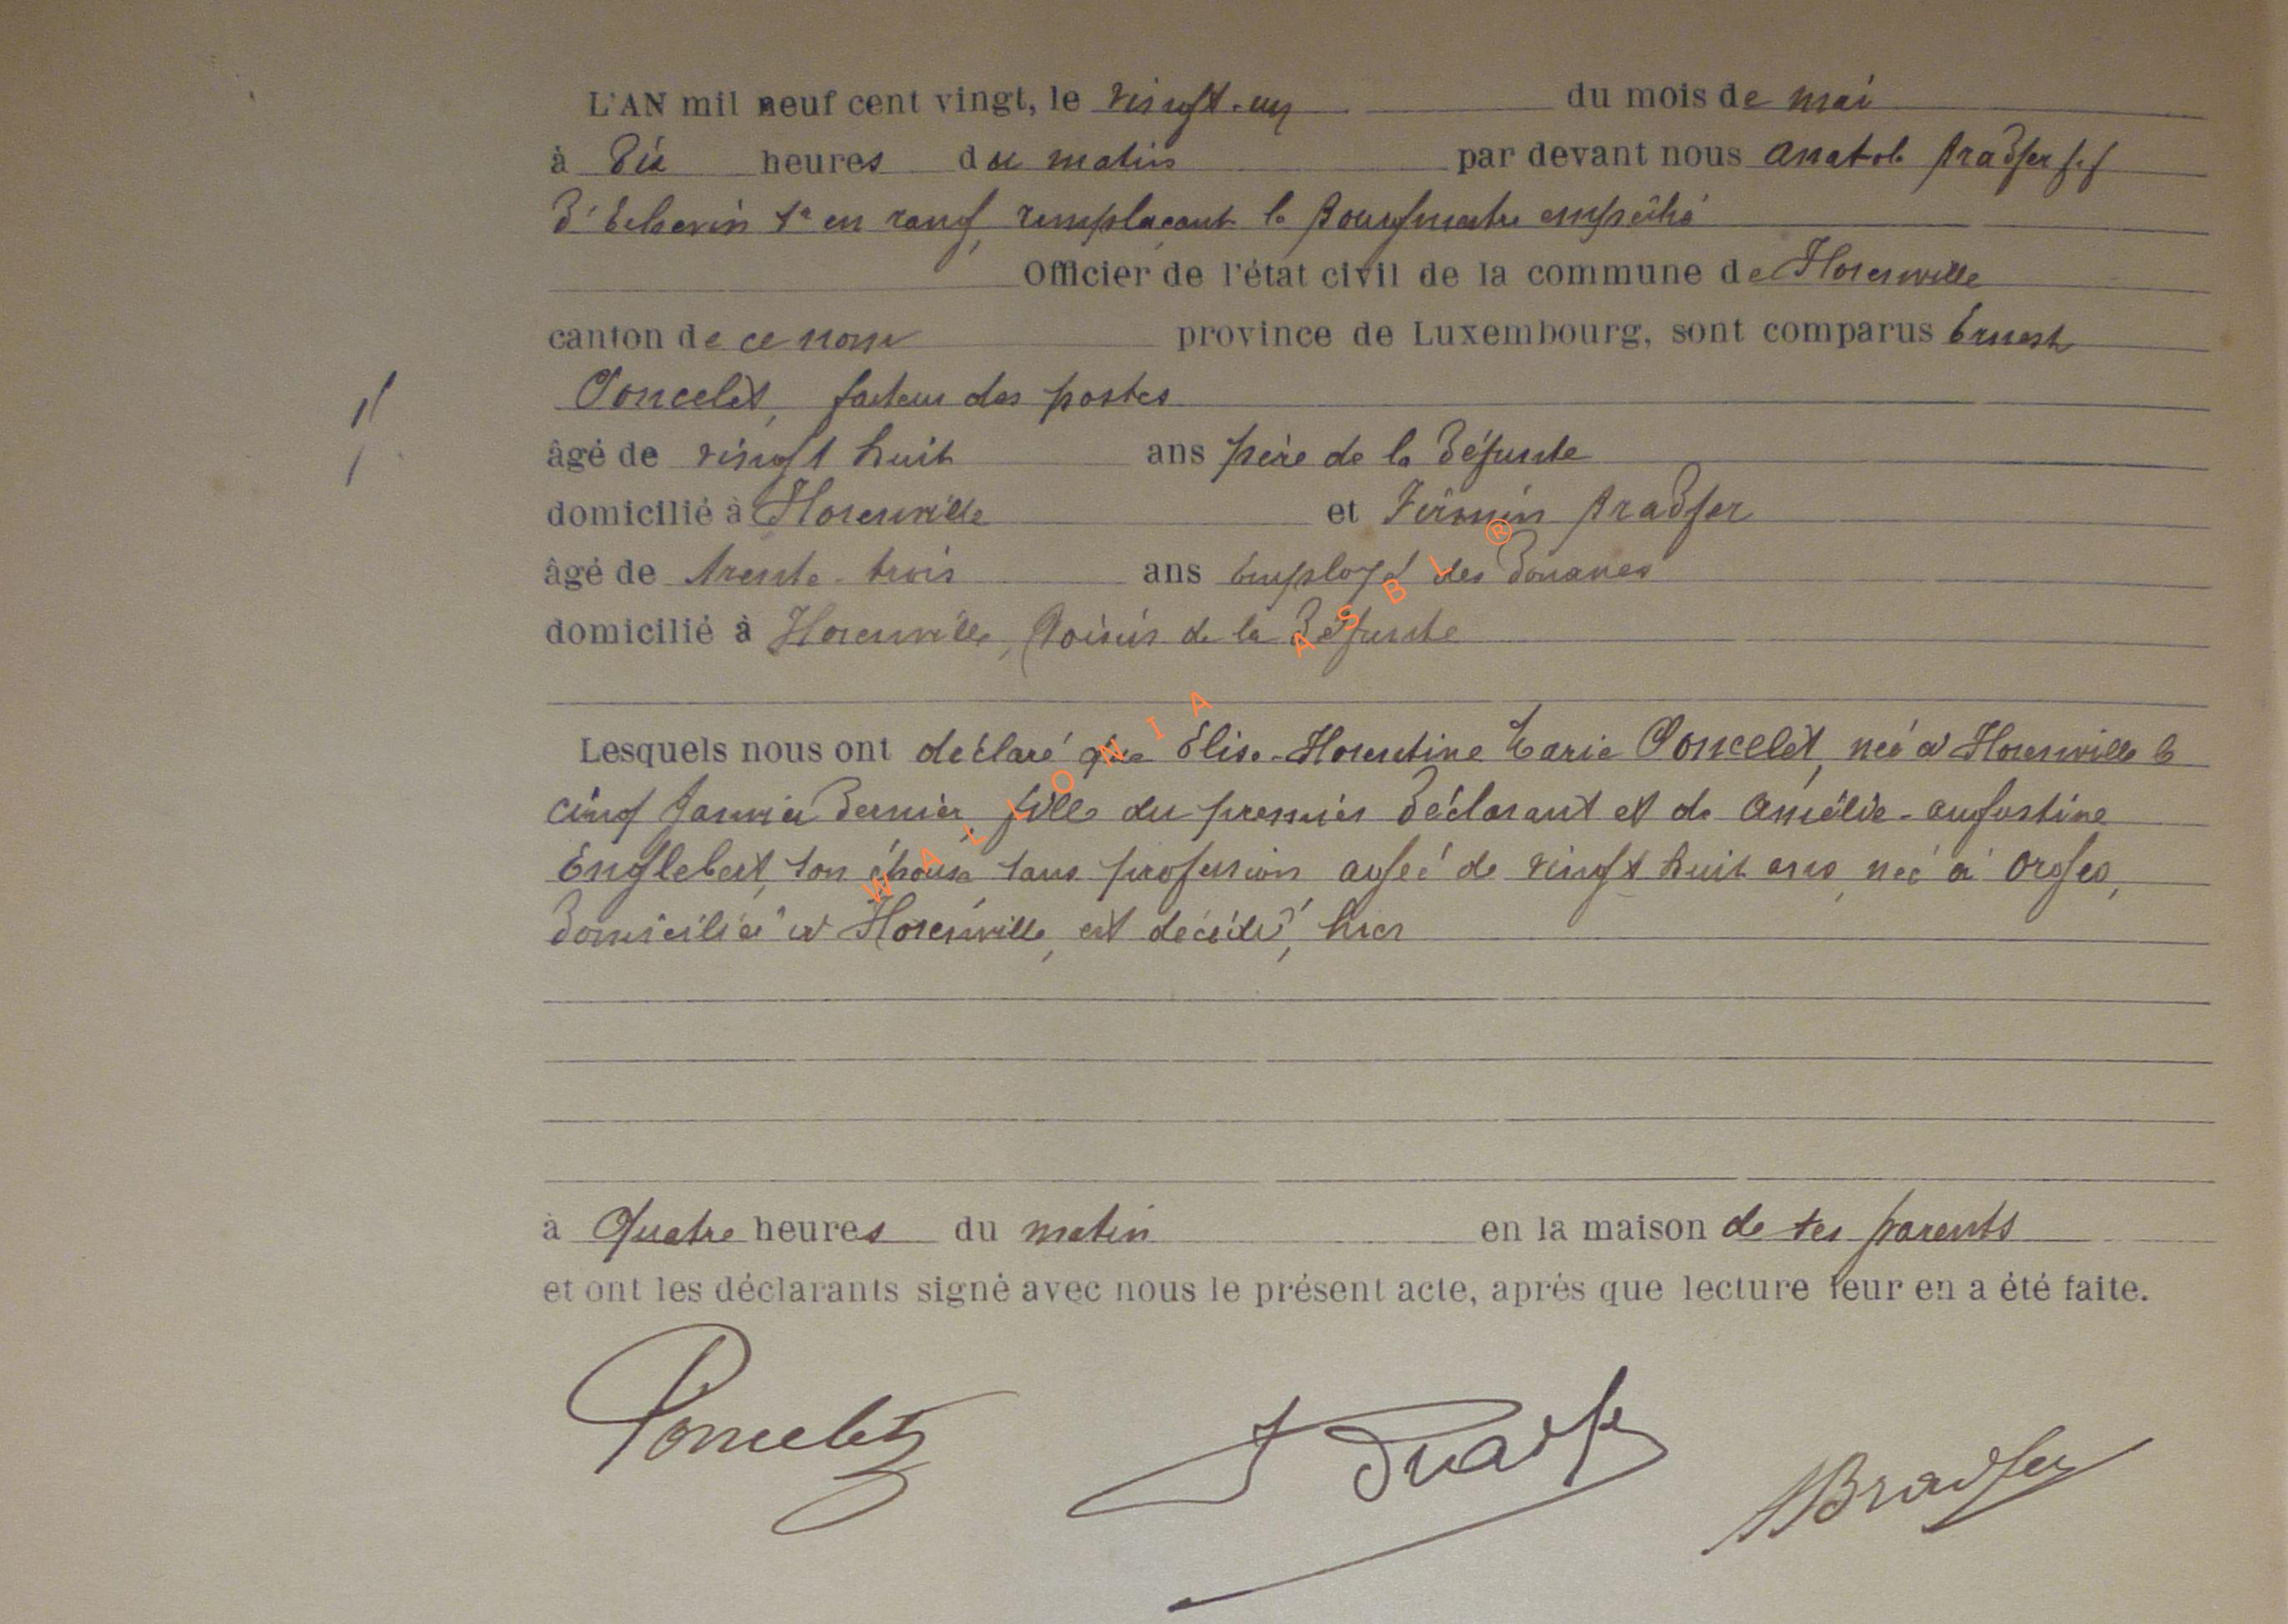 L'AN mil neuf cent vingt, le vingt-un du mois de mai
à Dix heures du matin par devant nous Anatole Bradfer f.f
D'Echevin 1er en rang, remplaçant le Bourgmestre empêché
Officier de l'état civil de la commune de Florenville
canton de ce nom province de Luxembourg, sont comparus Ernest
Poncelet, facteur des postes
âgé de vingt huit ans père de la Défunte
domicilié à Florenville et Firmin Bradfer
âgé de trente-trois ans Employé des Douanes
domicilié à Florenville, Voisin de la Défunte
Lesquels nous ont déclaré que Élise-Florentine Marie Poncelet, née à Florenville le
cinq Janvier Dernier, fille du premier Déclarant et de Amélie-Augustine
Englebert, son épouse, sans profession, agée de vingt huit ans, née à Orgeo,
Domiciliée à Florenville, est décédée, hier
à Quatre heures du matin en la maison de ses parents
et ont les déclarants signé avec nous le présent acte, après que lecture leur en a été faite.
Poncelet F Bradfer ABradfer
WALLONIA ASBL ®